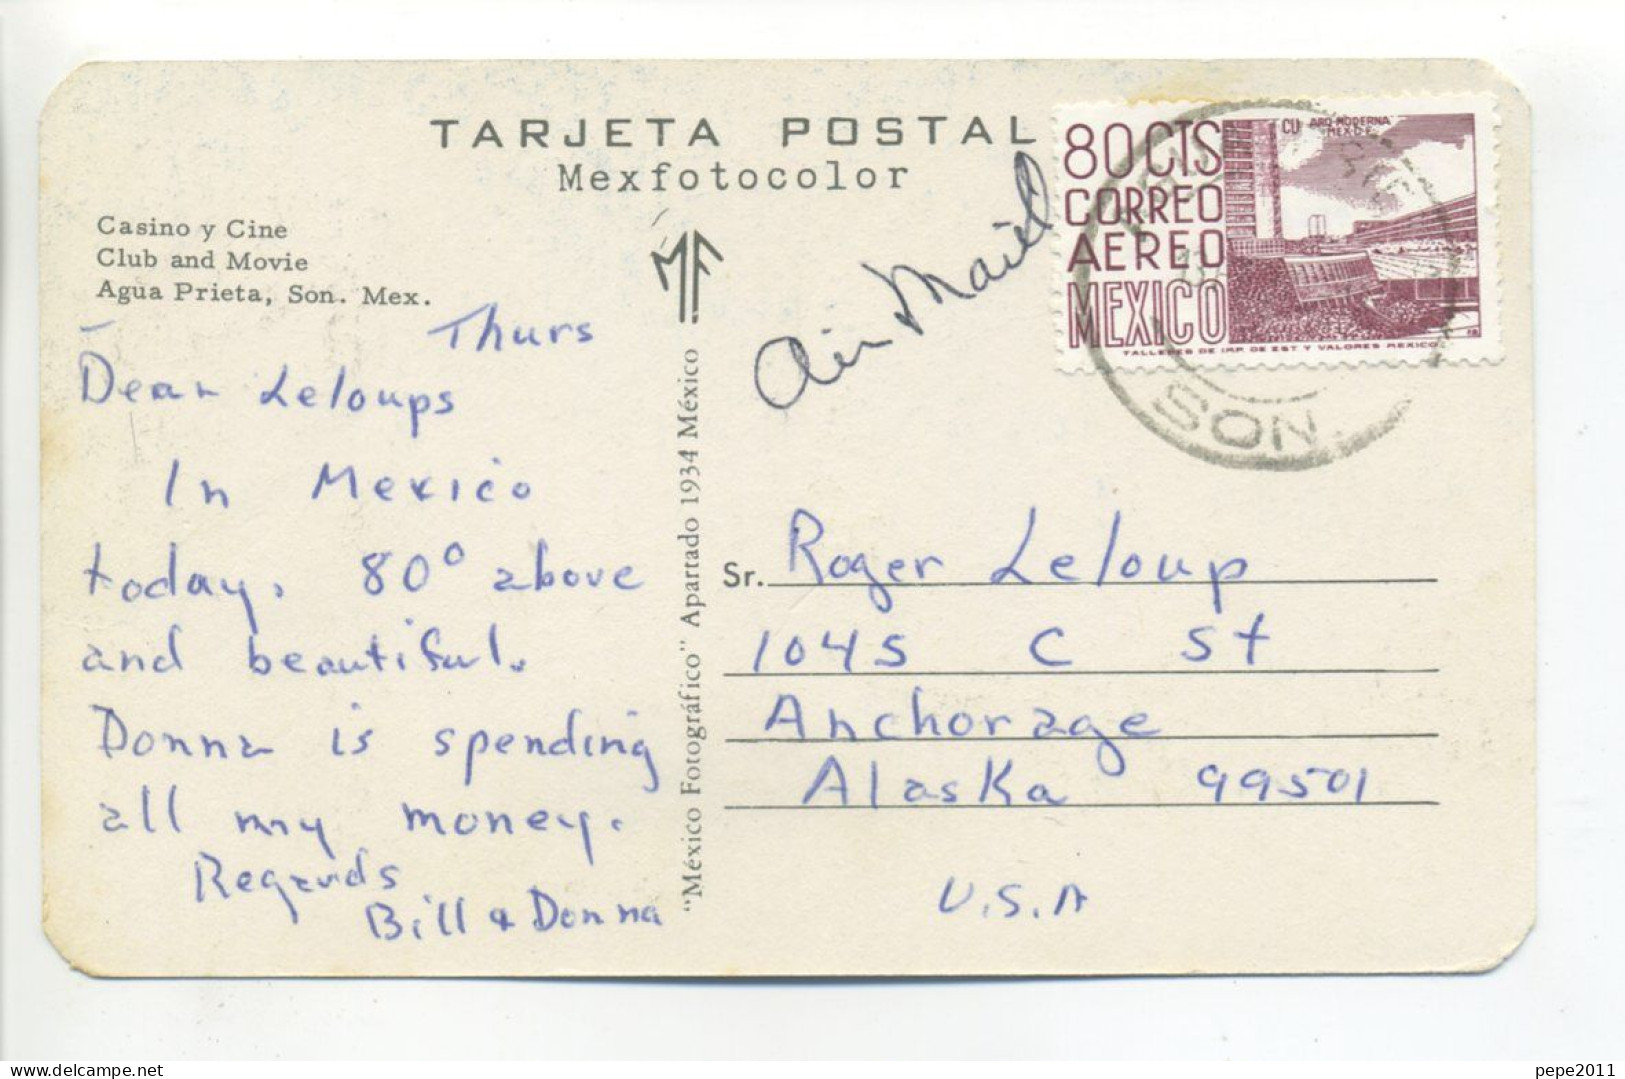 TARJETA POSTAL
Mexfotocolor
Casino y Cine
Club and Movie
Agua Prieta, Son. Mex.
Thurs
Dear Leloups
In Mexico
today. 80° above
and beautiful.
Donna is spending
all my money.
Regards
Bill & Donna
MF
"México Fotográfico" Apartado 1934 México
Air Mail
80 CTS
CORREO
AEREO
MEXICO
CU ARQ. MODERNA
MEX. D.F.
TALLERES DE IMP. DE EST. Y VALORES MEXICO
SON.
Sr. Roger Leloup
1045 C St
Anchorage
Alaska 99501
U.S.A
pepe2011